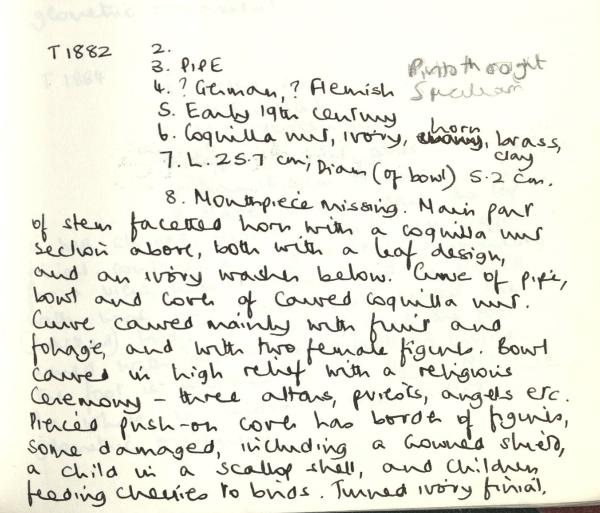 T1882 2.
3. PIPE
4. ? German, ? Flemish
5. Early 19th century
6. Coquilla nut, ivory, horn, brass, clay
7. L. 25.7 cm; Diam (of bowl) 5.2 cm.
8. Mouthpiece missing. Main part
of stem facetted horn with a coquilla nut
section above, both with a leaf design,
and an ivory washer below. Curve of pipe,
bowl and cover of carved coquilla nut.
Curve carved mainly with fruit and
foliage, and with two female figures. Bowl
carved in high relief with a religious
ceremony – three altars, priests, angels etc.
Pierced push-on cover has border of figures,
some damaged, including a crowned shield,
a child in a scallop shell, and children
feeding cherries to birds. Turned ivory finial.